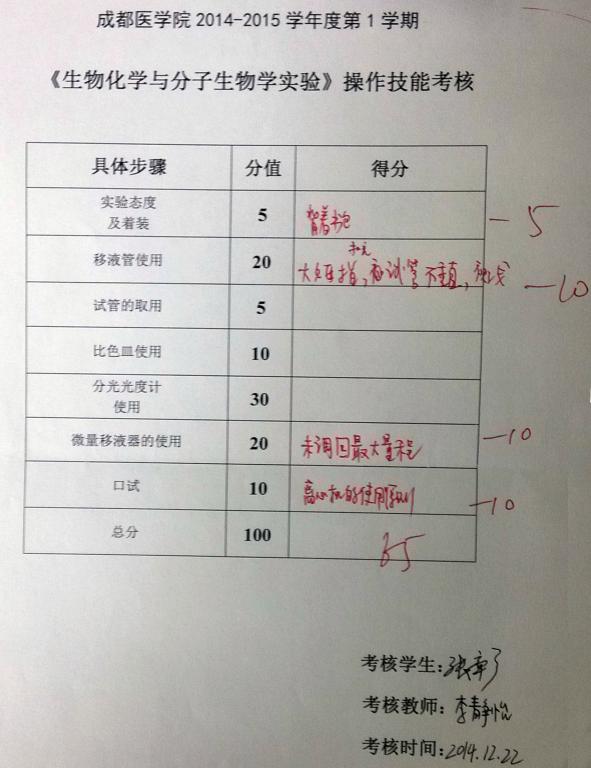 成都医学院 2014-2015 学年度第 1 学期
《生物化学与分子生物学实验》操作技能考核
具体步骤 分值 得分
实验态度
及着装 5 背着书包 -5
移液管使用 20 大豆 试管不垂直, -10
试管的取用 5
比色皿使用 10
分光光度计
使用 30
微量移液器的使用 20 未调回最大量程 -10
口试 10 离心机的使用原则 -10
总分 100 65
考核学生:
考核教师: 李静怡
考核时间: 2014.12.22